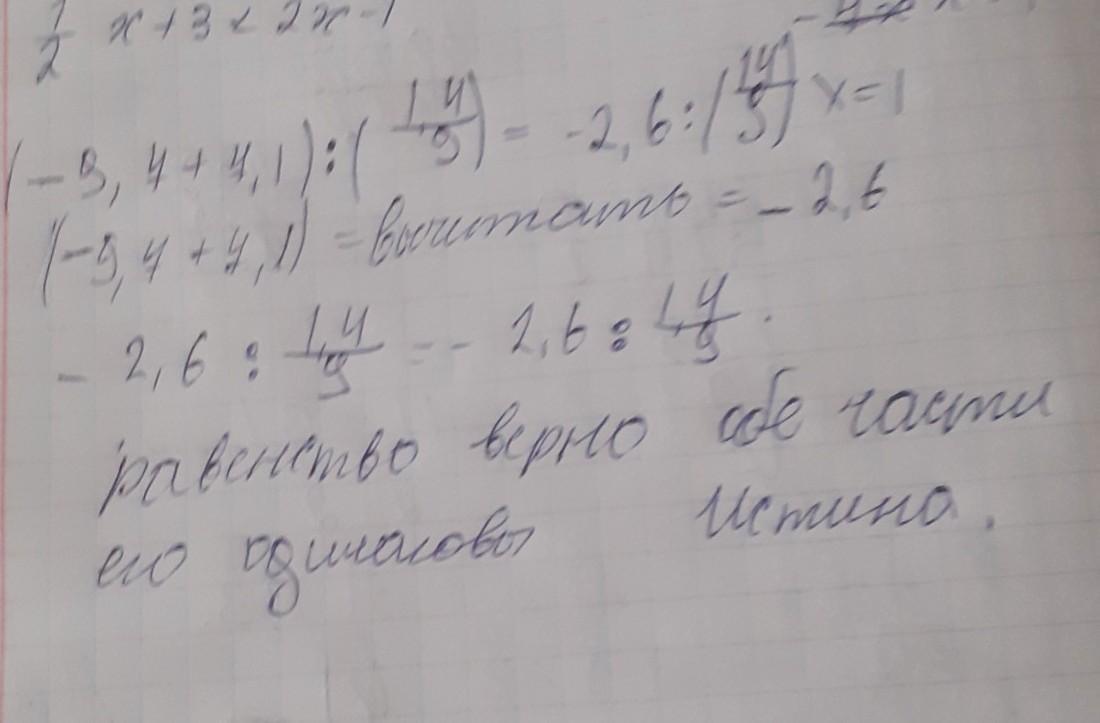 1/2 x + 3 < 2x - 1
(-9,4 + 4,1) : (1,4/9) = -2,6 : (1,4/9) x = 1
(-9,4 + 4,1) = вычитать = - 2,6
- 2,6 : 1,4/9 = - 2,6 : 1,4/9.
равенство верно обе части
его одинаковы Истина.